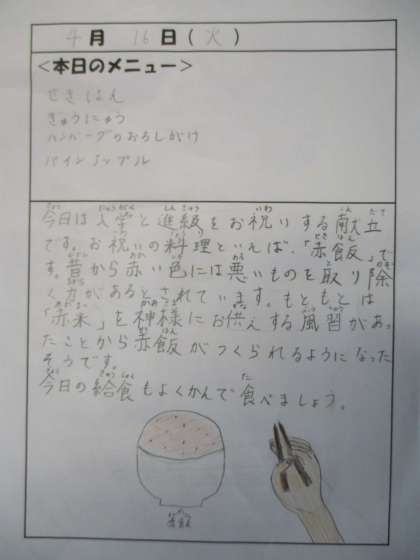 4月16日(火)
<本日のメニュー>
せきはん
ぎゅうにゅう
ハンバーグのおろしがけ
パインアップル
今日は入学と進級をお祝いする献立
です。お祝いの料理といえば、「赤飯」で
す。昔から赤い色には悪いものを取り除
く力があるとされています。もともとは
「赤米」を神様にお供えする風習があっ
たことから赤飯がつくられるようになった
そうです。
今日の給食もよくかんで食べましょう。
赤飯